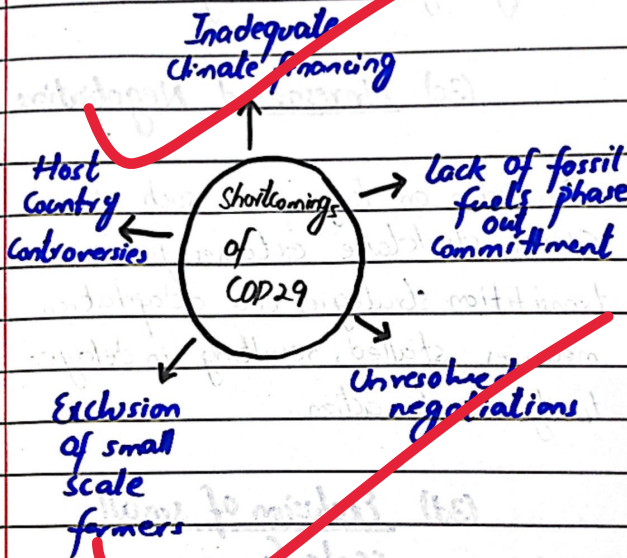 Inadequate
Climate financing
Host
Country
Controversies
Shortcomings
of
COP29
Lack of fossil
fuel's phase
out
Committment
Unresolved
negotiations
Exclusion
of small
scale
farmers